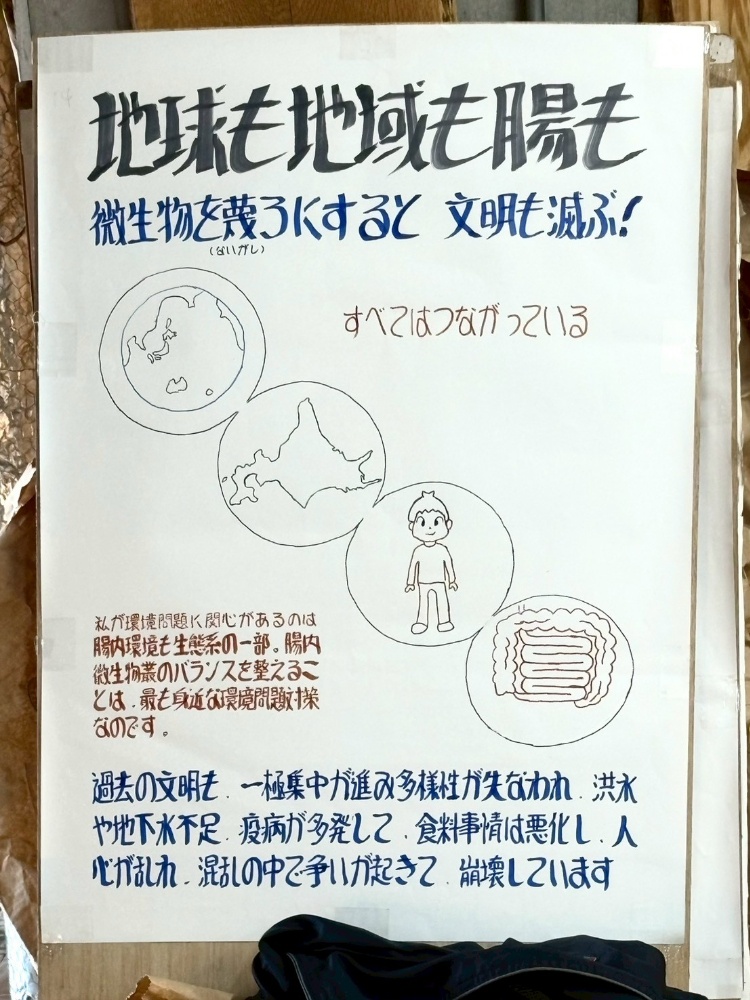 地球も地域も腸も
微生物を蔑ろにすると 文明も滅ぶ!
(ないがし)
すべてはつながっている
私が環境問題に関心があるのは
腸内環境も生態系の一部。腸内
微生物叢のバランスを整えるこ
とは、最も身近な環境問題対策
なのです。
過去の文明も、一極集中が進み多様性が失なわれ、洪水
や地下水不足、疫病が多発して、食料事情は悪化し、人
心が乱れ、混乱の中で争いが起きて、崩壊しています